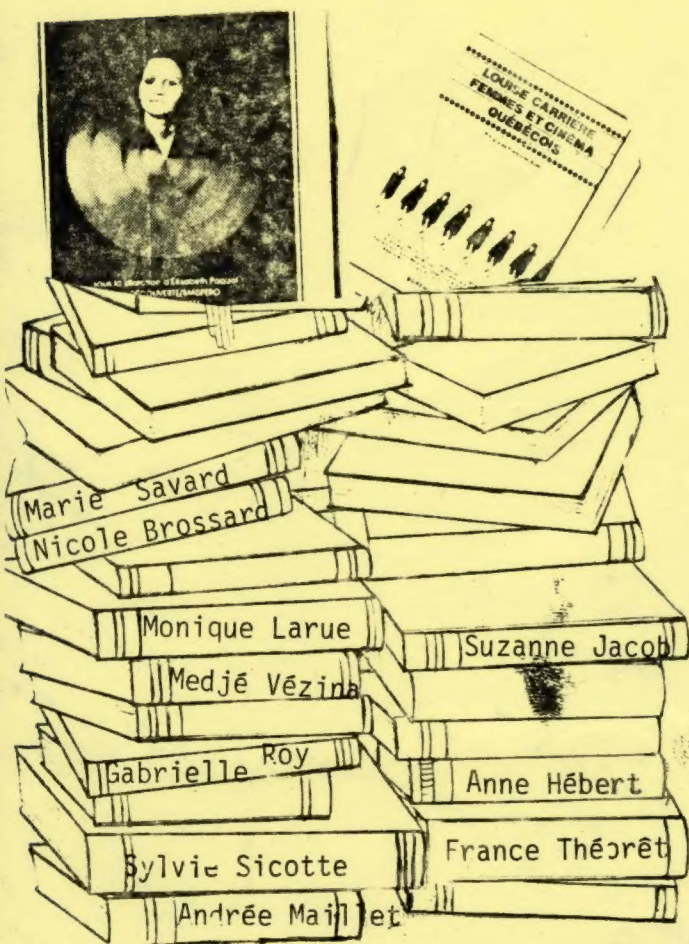 sous la direction d'Élisabeth Paquot
LOUISE CARRIÈRE
FEMMES ET CINÉMA
QUÉBÉCOIS
Marie Savard
Nicole Brossard
Monique Larue
Medjé Vézina
Gabrielle Roy
Sylvie Sicotte
Andrée Maillet
Suzanne Jacob
Anne Hébert
France Théorêt